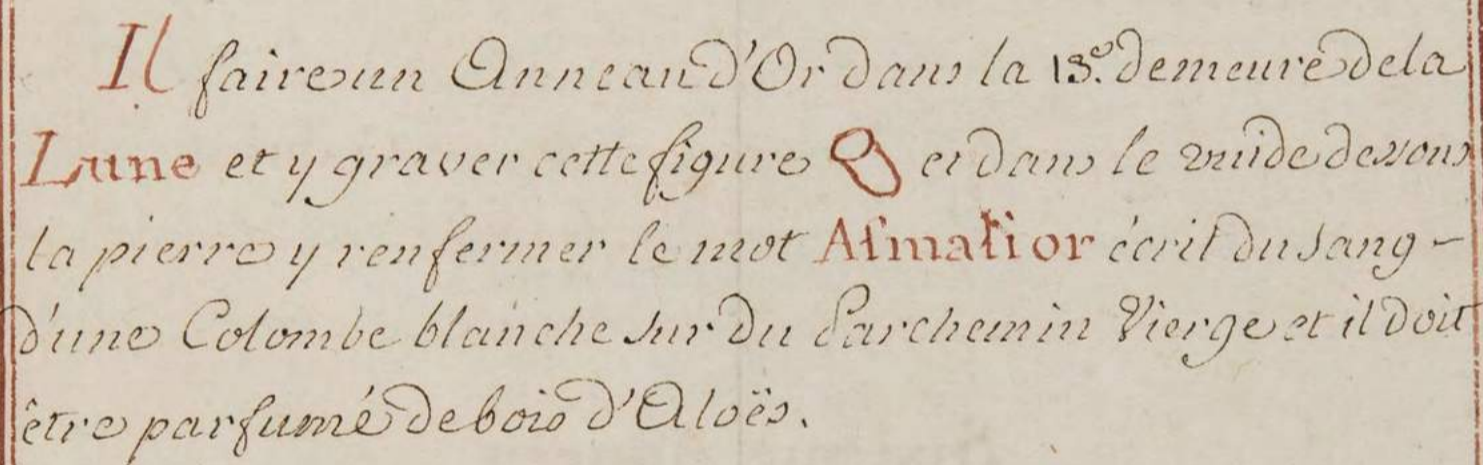 Il faire un Anneau d'Or dans la 13.e demeure de la
Lune et y graver cette figure et dans le vuide dessous
la pierre y renfermer le mot Asmalior écrit du sang -
d'une Colombe blanche sur du Parchemin Vierge et il doit
être parfumé de bois d'Aloës.